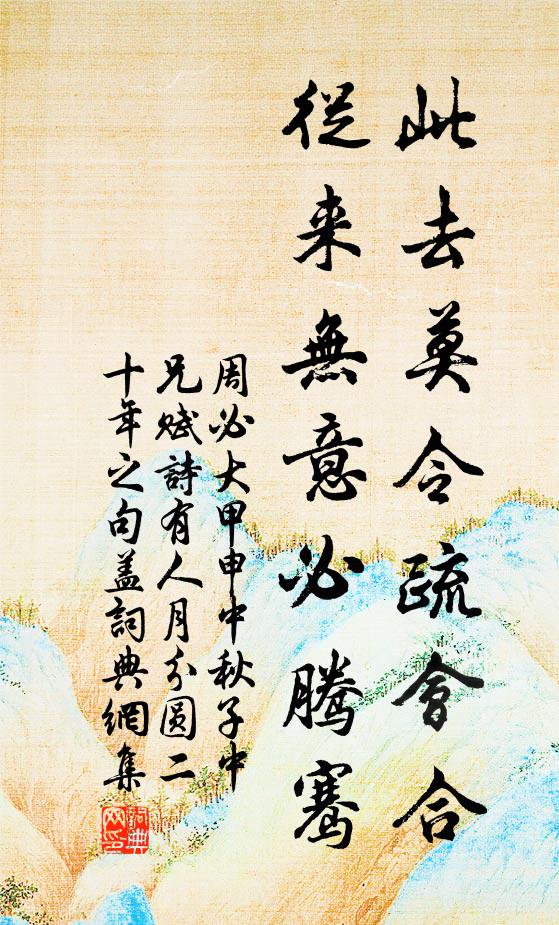 此去莫令疏會合
從来無意必騰騫
周必大甲申中秋子中
兄赋詩有人月分圆二
十年之句盖詞典網集
詞典网印